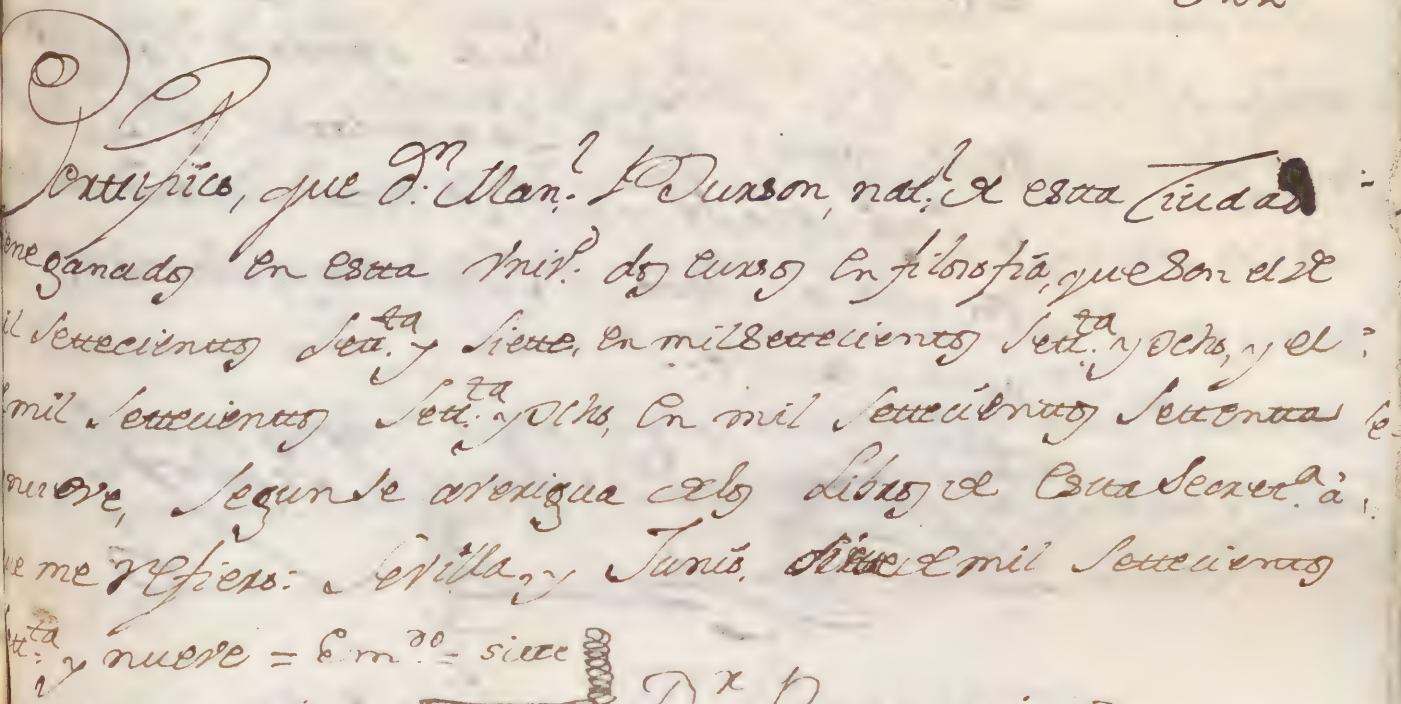 Zerttifico, que Dn. Manl. Durson, natl. de estta Ciudad
ene ganados en estta Univd. dos cursos en filosofia, que son el de
il settecienttos settta. y siette, en mil settecienttos settta. y ocho, y el
mil settecienttos settta. y ocho, en mil settecienttos settentta e
nueve, segun se averigua de los Libros de estta Secreta. à
ue me refiero: Sevilla, y Junio, siette de mil settecienttos
ettta. y nueve = Emdo. = siette
Dr. D